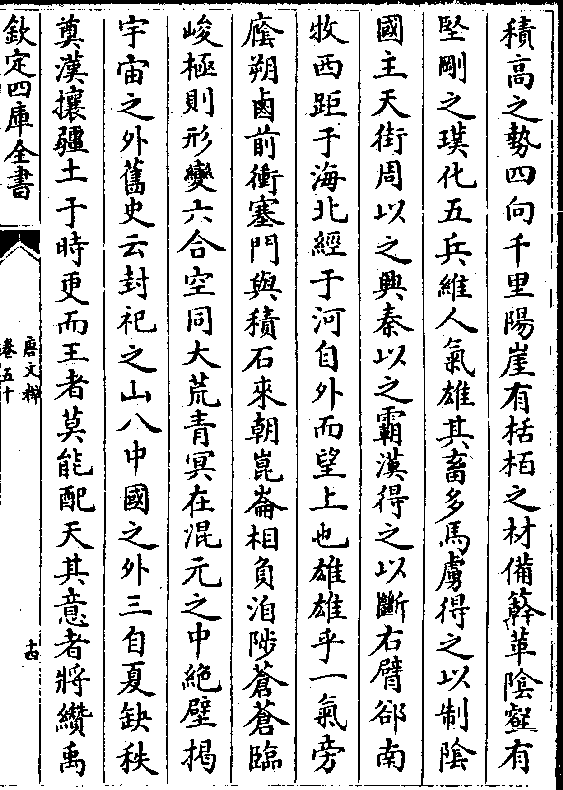 積高之勢四向千里陽崖有栝栢之材備簳革陰壑有
堅剛之璞化五兵維人氣雄其畜多馬虜得之以制陰
國主天街周以之興秦以之霸漢得之以斷右臂郤南
牧西距于海北經于河自外而望上也雄雄乎一氣旁
廕朔鹵前衝塞門與積石來朝崑崙相負洎陟蒼蒼臨
峻極則形變六合空同大荒青冥在混元之中絶壁揭
宇宙之外舊史云封祀之山八中國之外三自夏缺秩
奠漢攘疆土于時更而王者莫能配天其意者將纘禹
欽定四庫全書
唐文粹
卷五十
十四